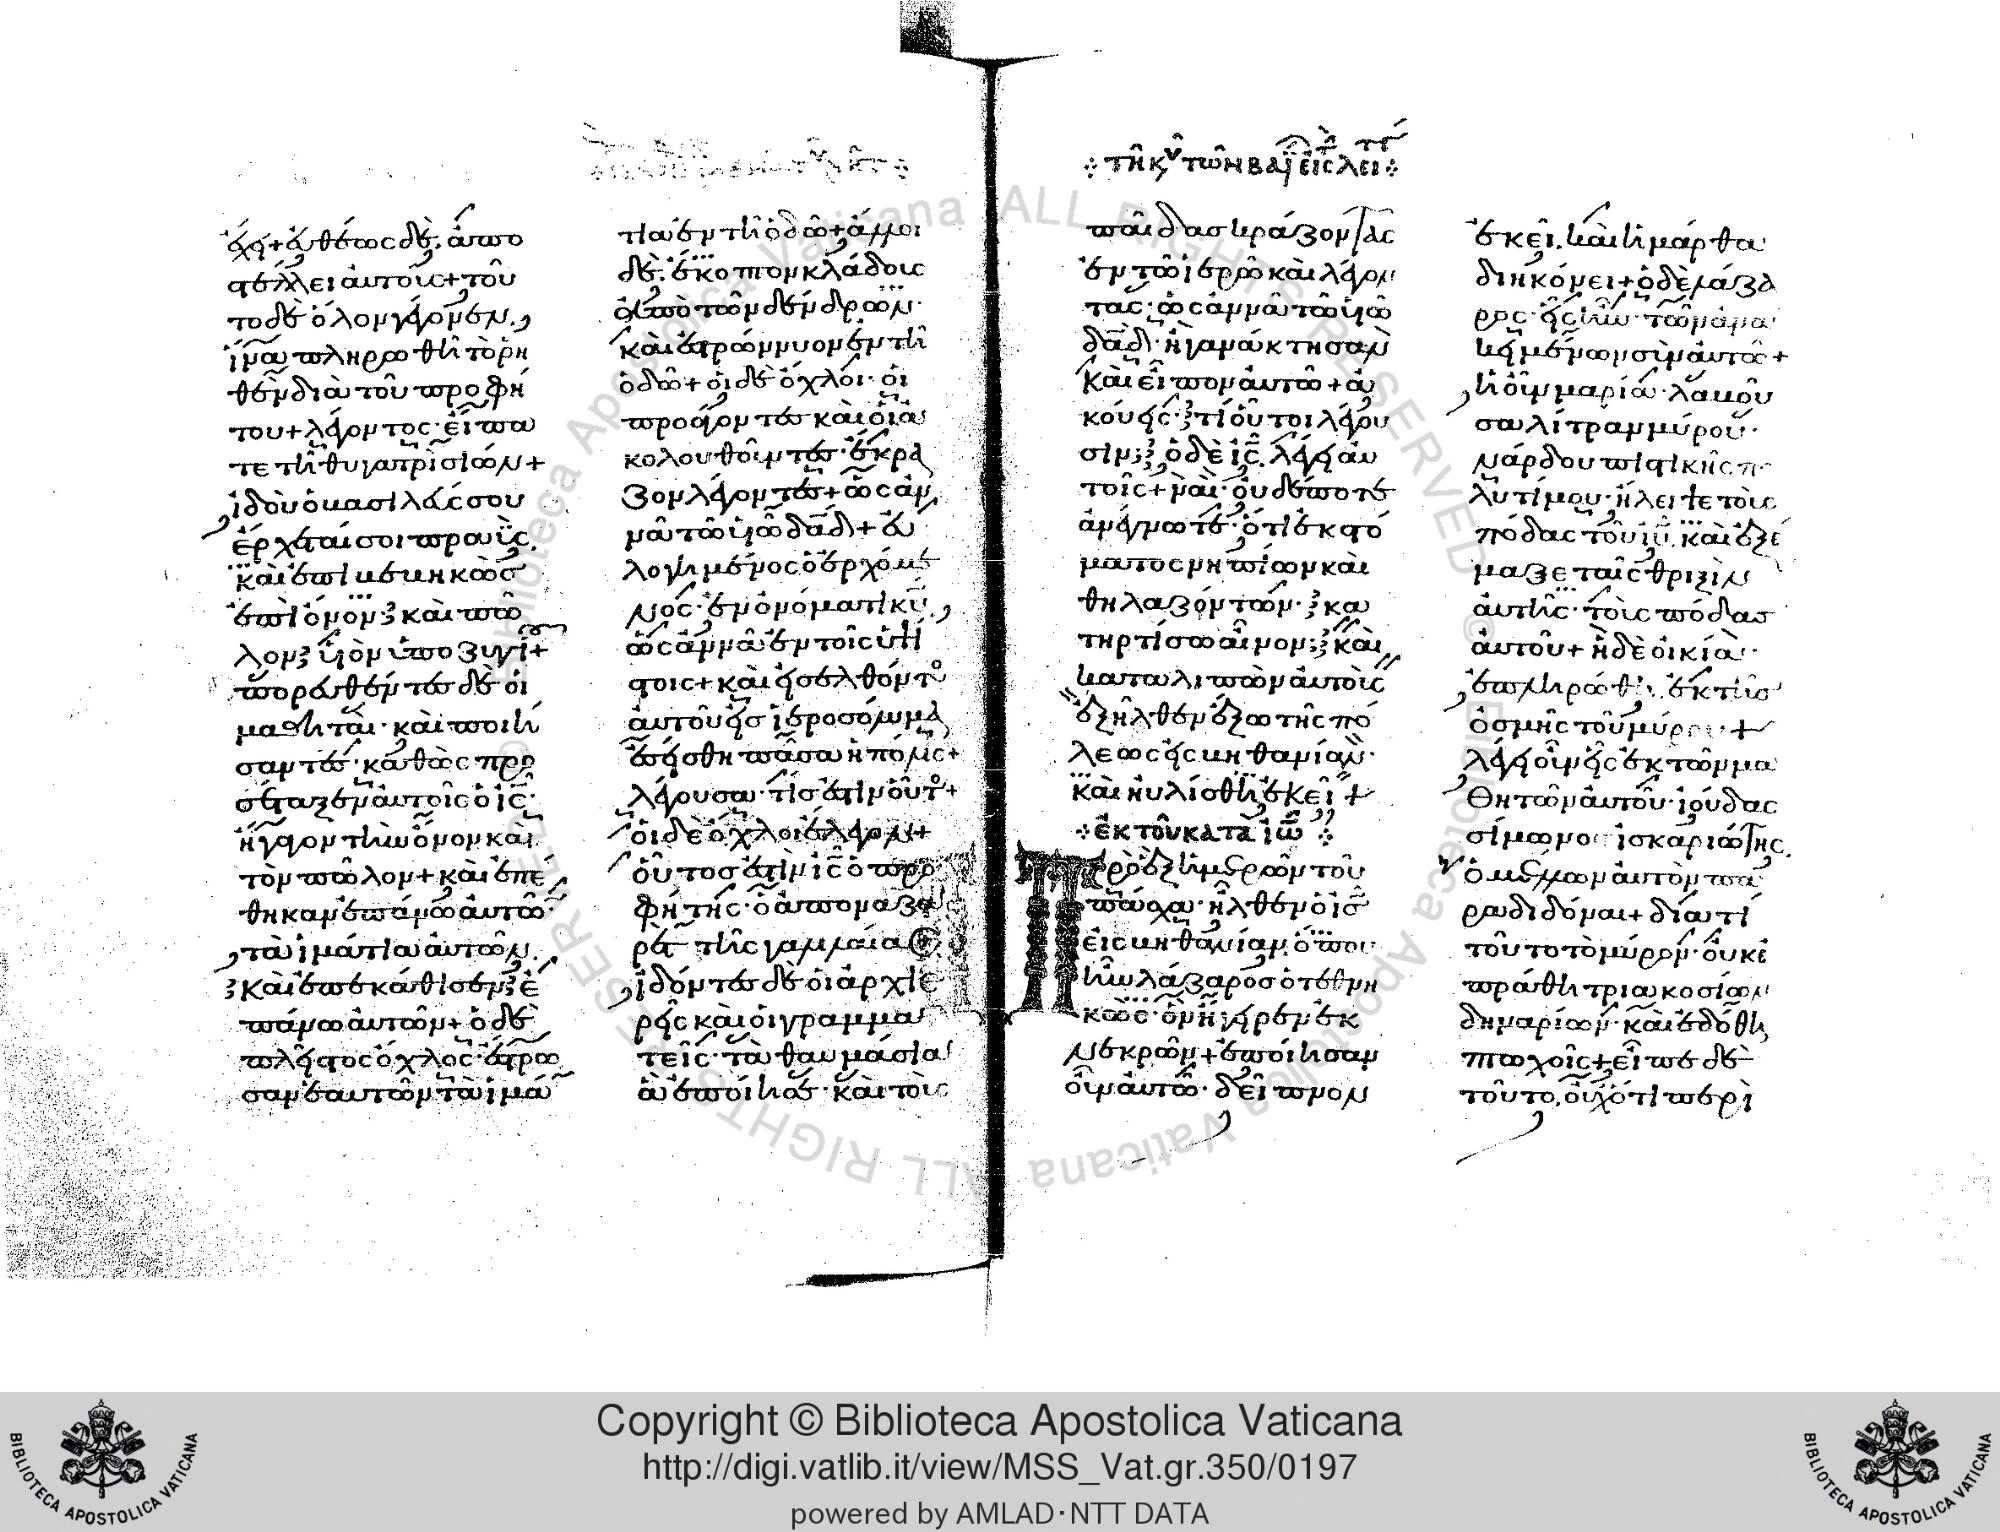 έχει + ἐυθέως δὲ, ἀπο
στέλλει ἀυτούς + τοῦ
το δὲ ὅλον γέγονεν,
ἵνα πληρωθῆ τὸ ῥη
θὲν διὰ τοῦ προφή
του + λέγοντος· εἴπα
τε τῆ θυγατρὶ σιών +
ἰδοὺ ὁ βασιλεύς σου
ἔρχεταί σοι πραΰς,
καὶ ἐπιβεβηκὼς
ἐπὶ ὄνον· καὶ πῶ
λον υἱὸν ὑποζυγί +
πορευθέντες δὲ οἱ
μαθηταὶ· καὶ ποιή
σαντες· καθὼς προ
σέταξεν αὐτοῖς ὁ ις·
ἤγαγον τὴν ὄνον καὶ
τὸν πῶλον + καὶ ἐπέ
θηκαν ἐπάνω ἀυτῶ
τὰ ἱμάτια ἀυτῶν,
καὶ ἐπεκάθισεν ἐ
πάνω ἀυτῶν + ὁ δὲ
πλεῖστος ὄχλος· ἔστρω
σαν ἑαυτῶν τὰ ἱμά
τια ἐν τῆ ὁδῶ + ἄλλοι
δὲ, ἔκοπτον κλάδους
ἀπὸ τῶν δένδρων·
καὶ ἐστρώννυον ἐν τῆ
ὁδῶ + οἱ δὲ ὄχλοι· οἱ
προάγοντες καὶ οἱ ἀ
κολουθοῦντες· ἔκρα
ζον λέγοντες + ὡσαν
νὰ τῶ υἱῶ δαδ + ἐυ
λογημένος ὁ ἐρχόμε
νος· ἐν ὀνόματι κυ,
ὡσαννὰ ἐν τοῖς ὑψί
στοις + καὶ εἰσελθόντ
ἀυτοῦ εἰς ἱεροσόλυμα
ἐσείσθη πᾶσα ἡ πόλις +
λέγουσα· τίς ἐστιν οὗτ +
οἱ δὲ ὄχλοι ἔλεγον +
οὗτος ἐστὶν ις ὁ προ
φήτης· ὁ ἀπο ναζα
ρὲτ τῆς γαλιλαίας
ἰδόντες δὲ οἱ ἀρχιε
ρεῖς καὶ οἱ γραμμα
τεῖς· τὰ θαυμάσια
ἃ ἐποίησε· καὶ τοὺς
τῆ κυ τῶν βαΐ εἰς λει
παῖδας κράζοντας
ἐν τῶ ἱερῶ καὶ λέγον
τας· ὡσαννὰ τῶ υἱῶ
δαδ· ἠγανάκτησαν
καὶ εἶπον ἀυτῶ + ἀ
κούεις· τί οὗτοι λέγου
σιν; ὁ δὲ ις, λέγει ἀυ
τοῖς + ναὶ· οὐδέποτε
ἀνέγνωτε· ὅτι ἐκ στό
ματος νηπίων καὶ
θηλαζόντων· κα
τηρτίσω αἶνον; καὶ
καταλιπὼν ἀυτοὺς
ἐξῆλθεν ἔξω τῆς πό
λεως εἰς βηθανίαν·
καὶ ηυλίσθη ἐκεῖ +
ἐκ τοῦ κατὰ ἰω
Πρὸ ἓξ ἡμερῶν τοῦ
πάσχα· ἦλθεν ὁ ις
εἰς βηθανίαν· ὅπου
ἦν λάζαρος ὁ τεθνη
κώς· ὃν ἤγειρεν ἐκ
νεκρῶν + ἐποίησαν
οὖν ἀυτῶ· δεῖπνον
ἐκεῖ, καὶ ἡ μάρθα
διηκόνει + ὁ δὲ λάζα
ρος· εἷς ἦν· τῶν ἀνα
κειμένων σὺν ἀυτῶ +
ἡ οὖν μαρία· λαβοῦ
σα λίτραν μύρου·
νάρδου πιστικῆς π
λυτίμου· ἤλειψε τοὺς
πόδας τοῦ ιυ, καὶ ἐξέ
μαξε ταῖς θριξὶν
ἀυτῆς· τοὺς πόδας
ἀυτοῦ + ἡ δὲ οἰκία·
ἐπληρώθη, ἐκ τῆς
ὀσμῆς τοῦ μύρου +
λέγει οὖν εἷς ἐκ τῶν μα
θητῶν ἀυτοῦ· ἰούδας
σίμωνος ἰσκαριώτης,
ὁ μέλλων ἀυτὸν πα
ραδιδόναι + διατί
τοῦτο τὸ μύρον· ουκ ἐ
πράθη τριακοσίων
δηναρίων· καὶ ἐδόθη
πτωχοῖς + εἶπε δὲ
τοῦτο, οὐχ ὅτι περὶ
Copyright © Biblioteca Apostolica Vaticana
http://digi.vatlib.it/view/MSS_Vat.gr.350/0197
powered by AMLAD·NTT DATA
BIBLIOTECA APOSTOLICA VATICANA
BIBLIOTECA APOSTOLICA VATICANA